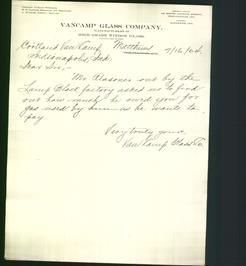 VANCAMP GLASS COMPANY,
HIGH GRADE WINDOW GLASS.
Cortland Van Camp, Matthews 7/16/04
Indianapolis, Ind.
Dear Sir,-
Mr Reasoner out by the
Lamp Black factory asked us to find
out how much he owed you for
gas used by him as he wants to
pay.
Very truly yours,
Van Camp Glass Co